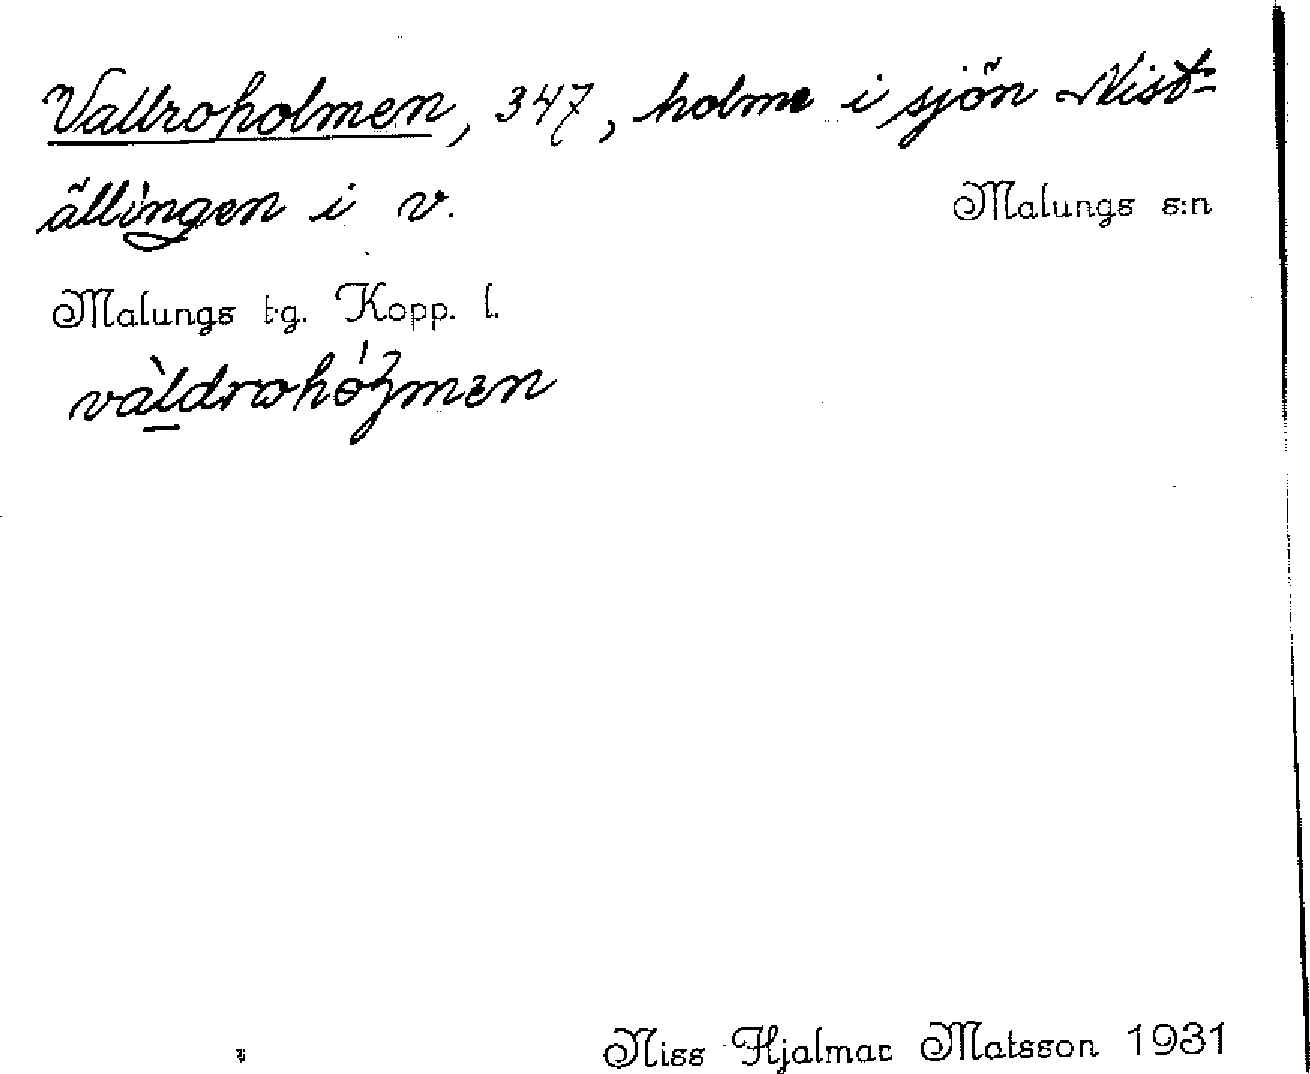 Vallroholmen, 347, holme i sjön Nist-
ällingen i v.
Malungs s:n
Malungs tg. Kopp. l.
Niss Hjalmar Matsson 1931